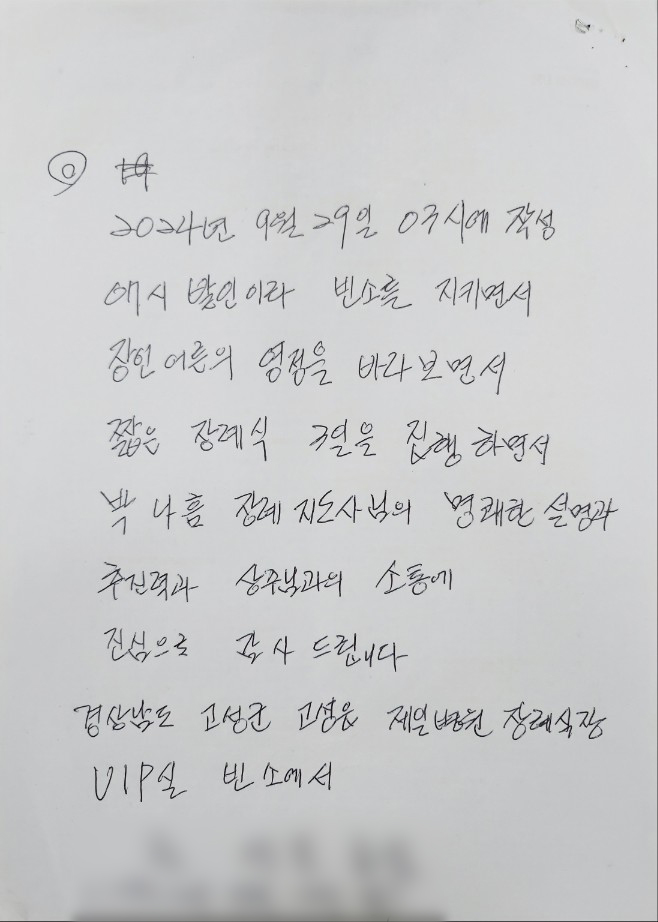 2024년 9월 29일 03시에 작성
07시 발인이라 빈소를 지키면서
장인어른의 영정을 바라보면서
짧은 장례식 3일을 집행하면서
박나흠 장례지도사님의 명쾌한 설명과
추진력과 상주님과의 소통에
진심으로 감사드립니다
경상남도 고성군 고성읍 제일병원 장례식장
VIP실 빈소에서